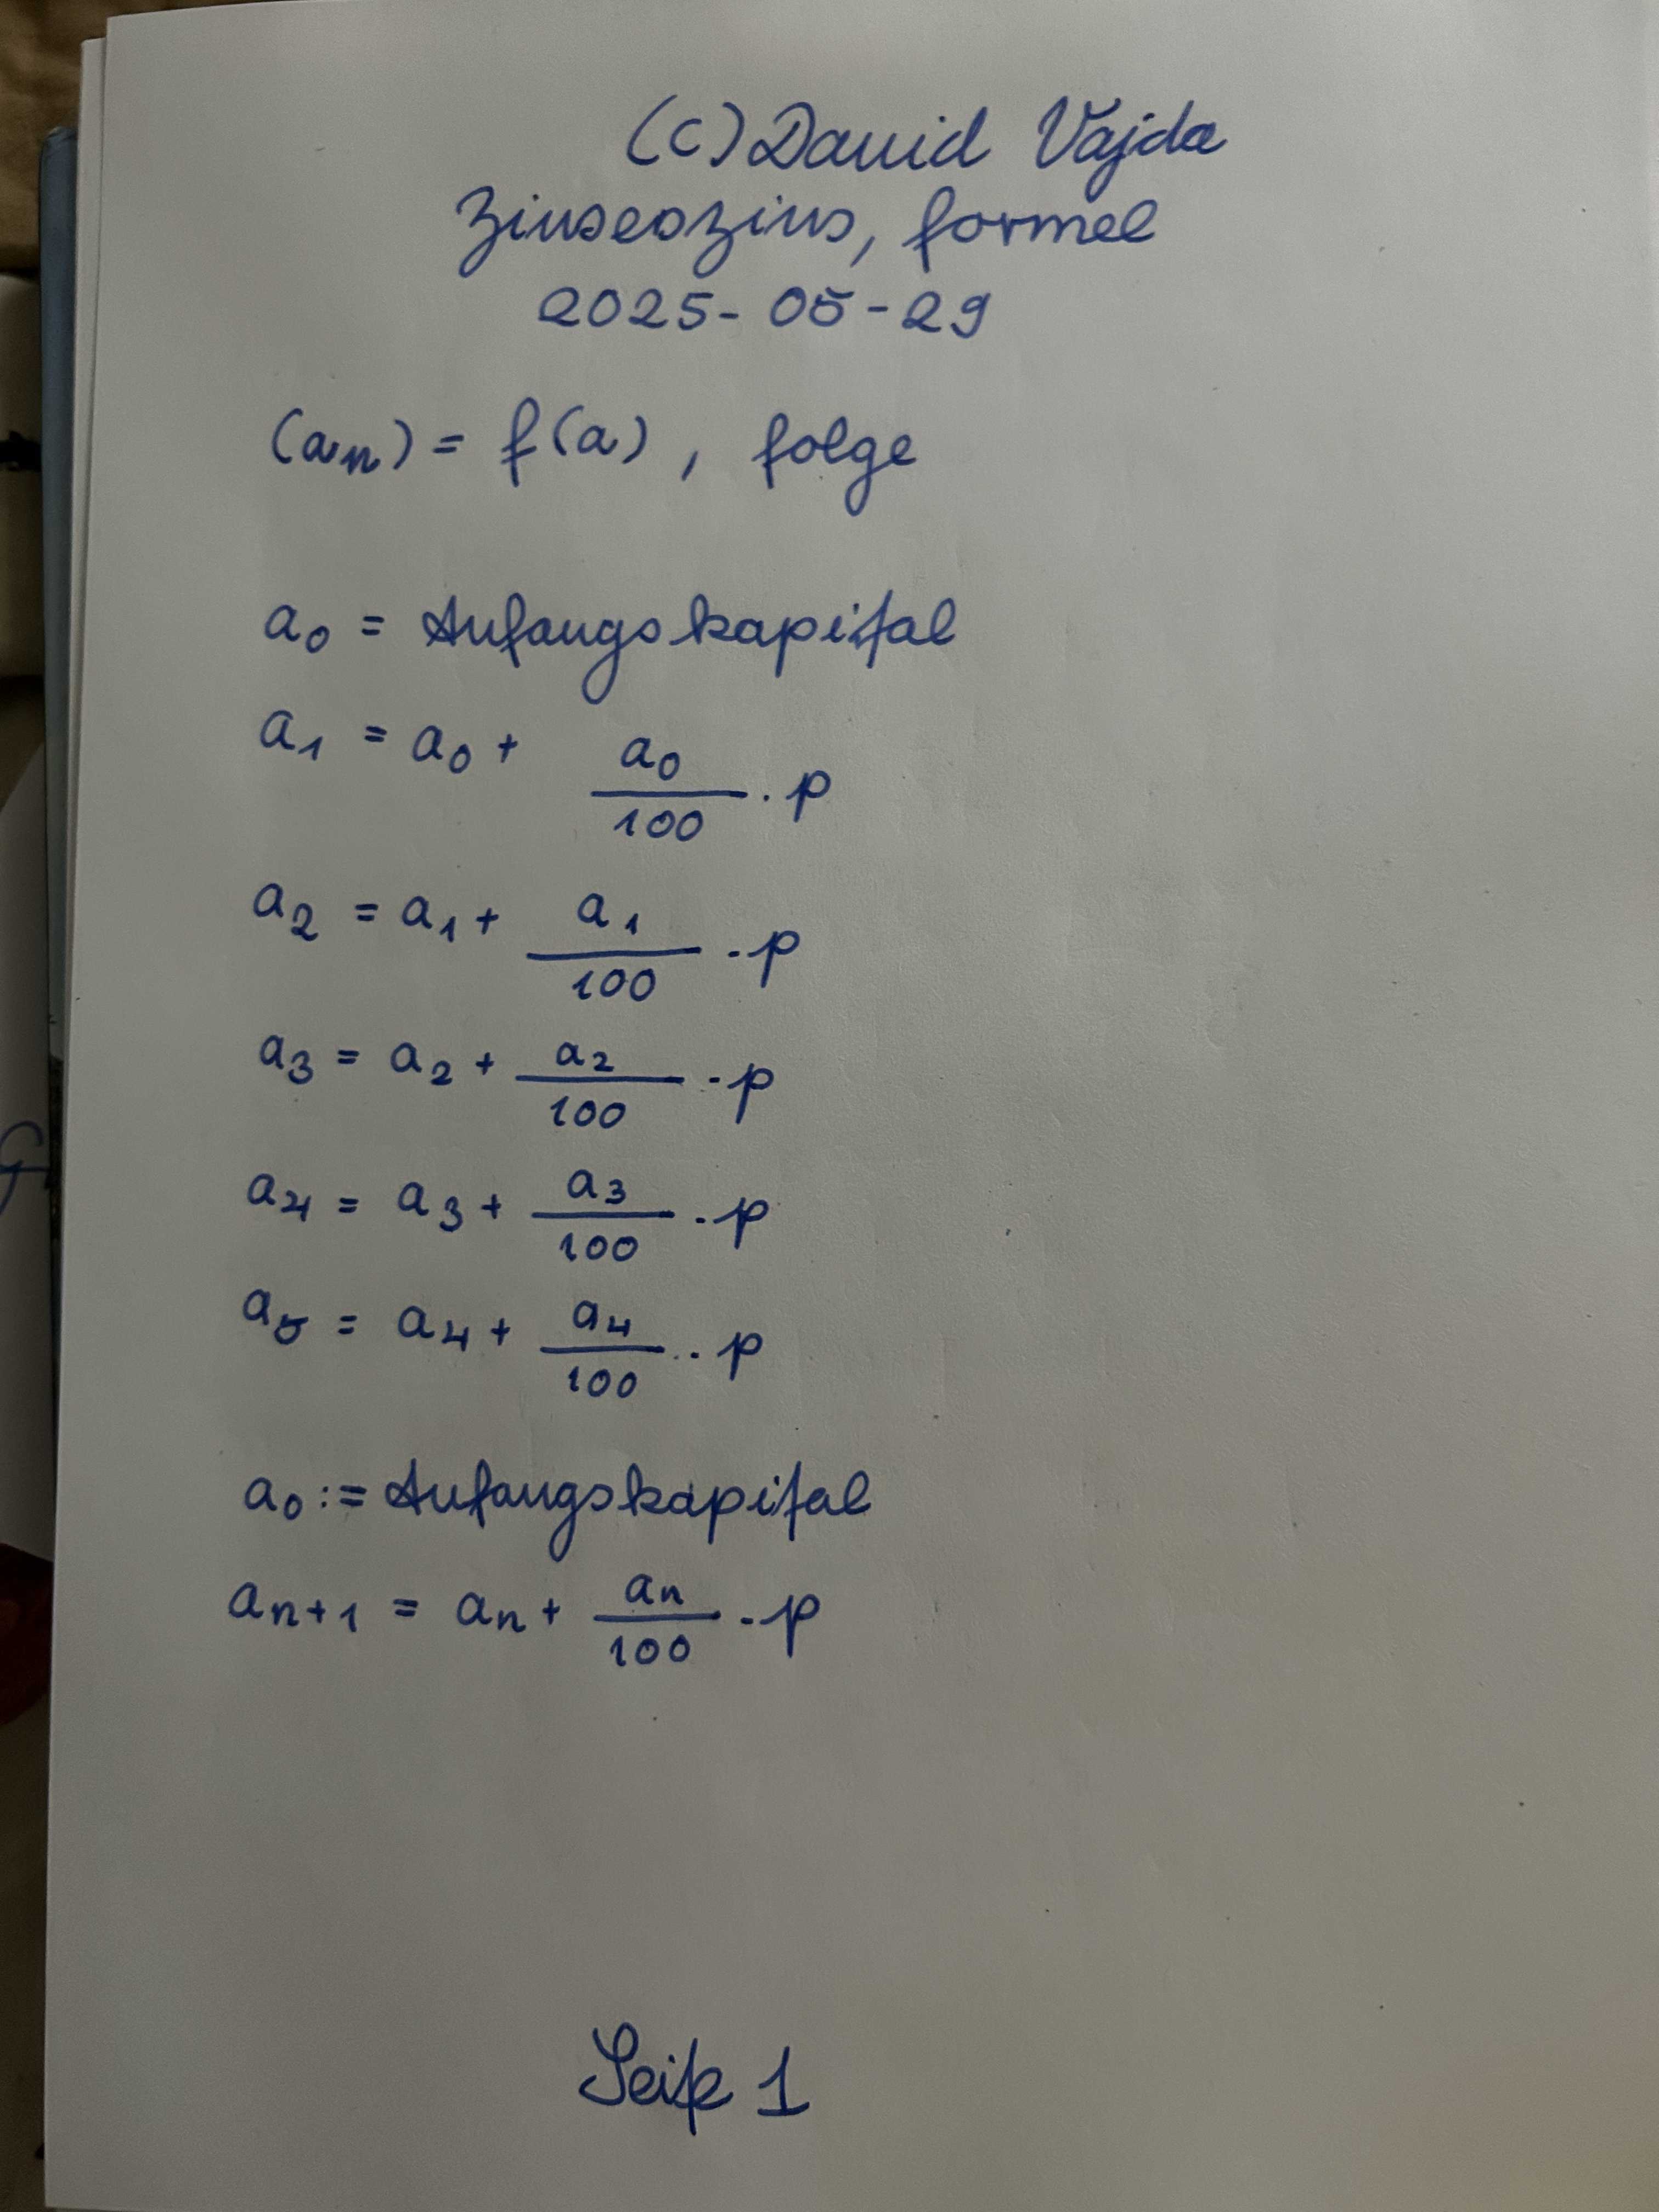 (c) David Vajda
Zinseszins, formel
2025-05-29
(an) = f(a), folge
a0 = Anfangskapital
a1 = a0 + a0/100 · p
a2 = a1 + a1/100 · p
a3 = a2 + a2/100 · p
a4 = a3 + a3/100 · p
a5 = a4 + a4/100 · p
a0 := Anfangskapital
an+1 = an + an/100 · p
Seite 1